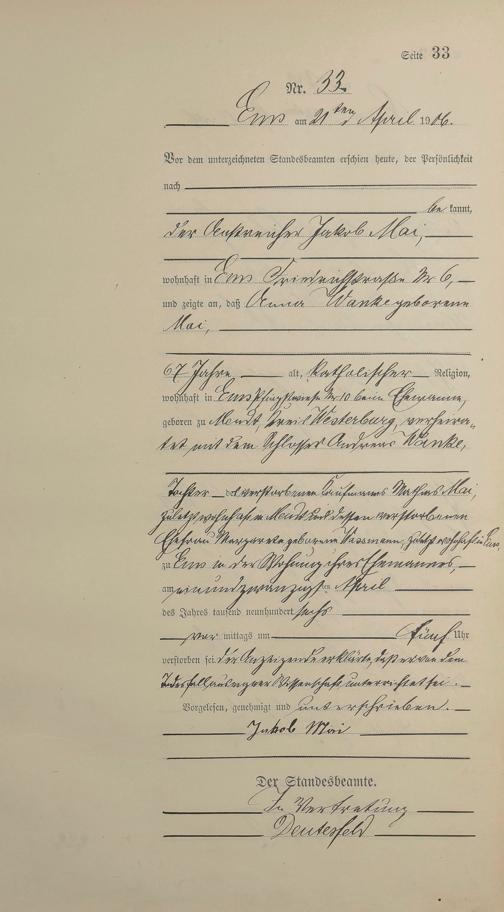 Seite 33
Nr. 33.
Ems am 21ten April 1906.
Vor dem unterzeichneten Standesbeamten erschien heute, der Persönlichkeit
nach
be kannt,
der Anstreicher Jakob Mai,
wohnhaft in Ems Friedrichstraße Nr 6,
und zeigte an, daß Anna Wanke geborene
Mai,
67 Jahre, alt, katholischer Religion,
wohnhaft in Ems Nr 10 beim Ehemanne,
geboren zu Mondt, Kreis Westerburg, verheira-
tet mit dem Schlosser Andreas Wanke,
Tochter des verstorbenen Kaufmanns Mathias Mai,
zuletzt wohnhaft in Mondt und dessen verstorbenen
Ehefrau Margareta geborene zuletzt wohnhaft in Ems,
zu Ems in der Wohnung ihres Ehemannes,
am einundzwanzigsten April
des Jahres tausend neunhundert sechs
vor mittags um fünf Uhr
verstorben sei. Der Anzeigende erklärte, daß er von dem
Todesfall aus eigener Wissenschaft unterrichtet sei.
Vorgelesen, genehmigt und unterschrieben.
Jakob Mai
Der Standesbeamte.
In Vertretung
Deutesfeld